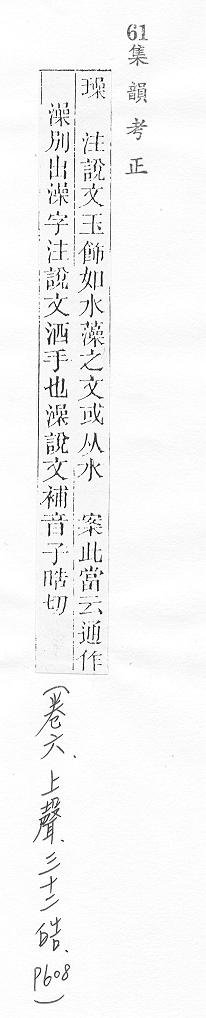 61集韻考正
璪 注說文玉飾如水藻之文或从水 案此當云通作
澡別出澡字注說文洒手也澡說文補音子晧切
(卷六、上聲、三十二皓、P608)